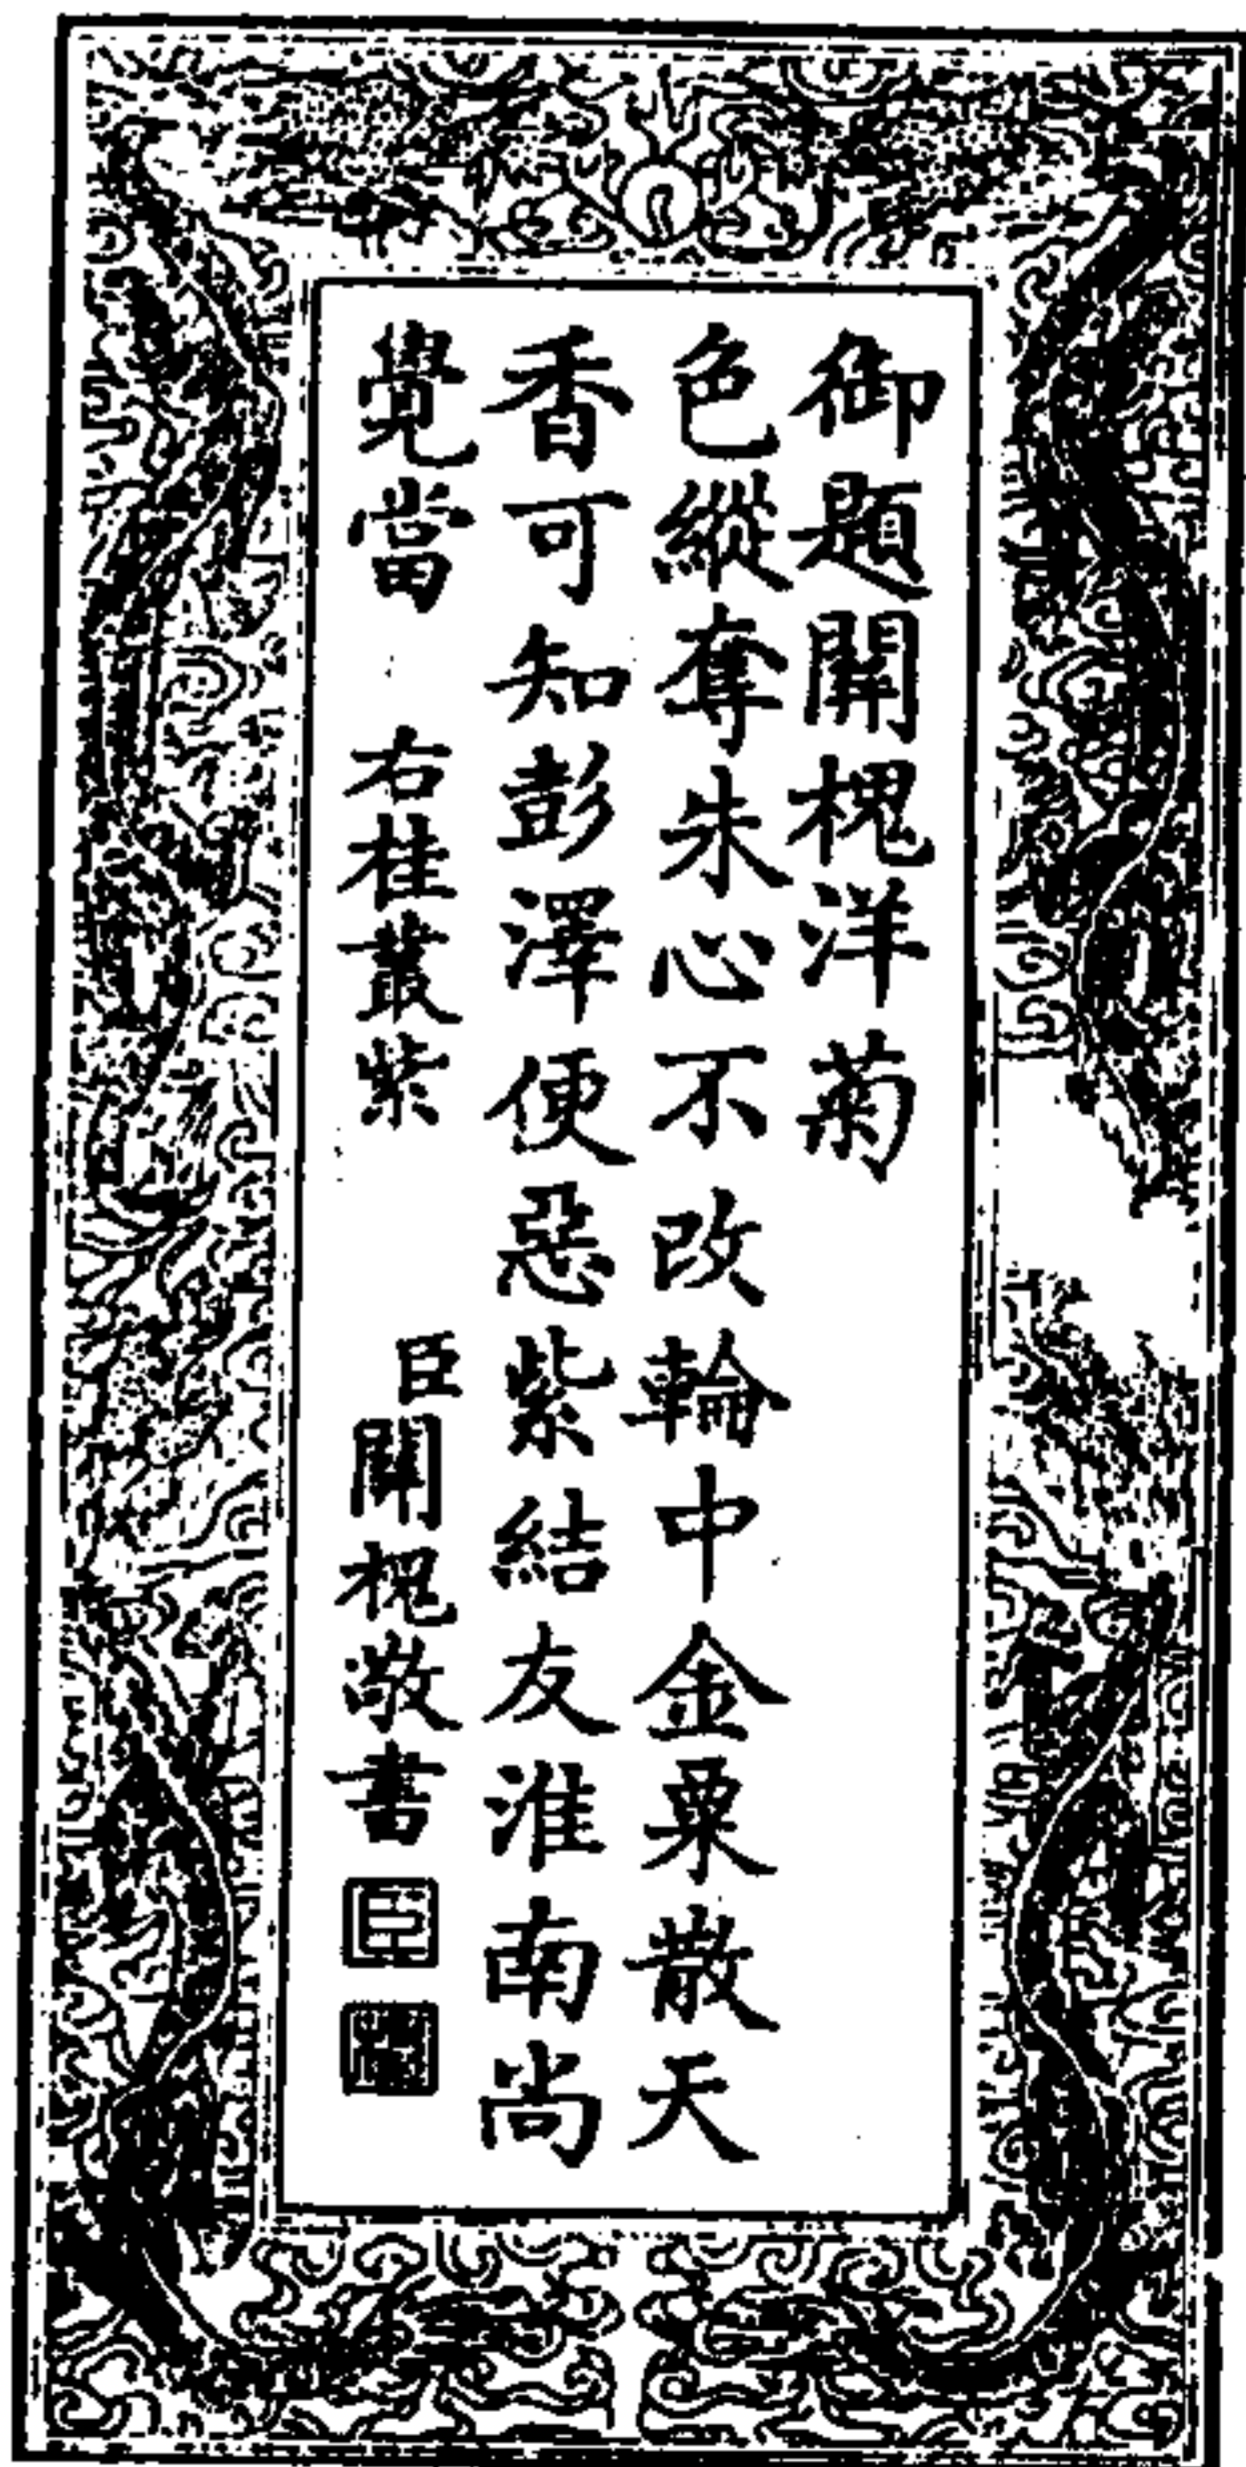 御題關槐洋菊
色縱奪朱心不改輪中金粟散天
香可知彭澤便惡紫結友淮南尚
覺當 右桂叢紫 臣關槐敬書
臣